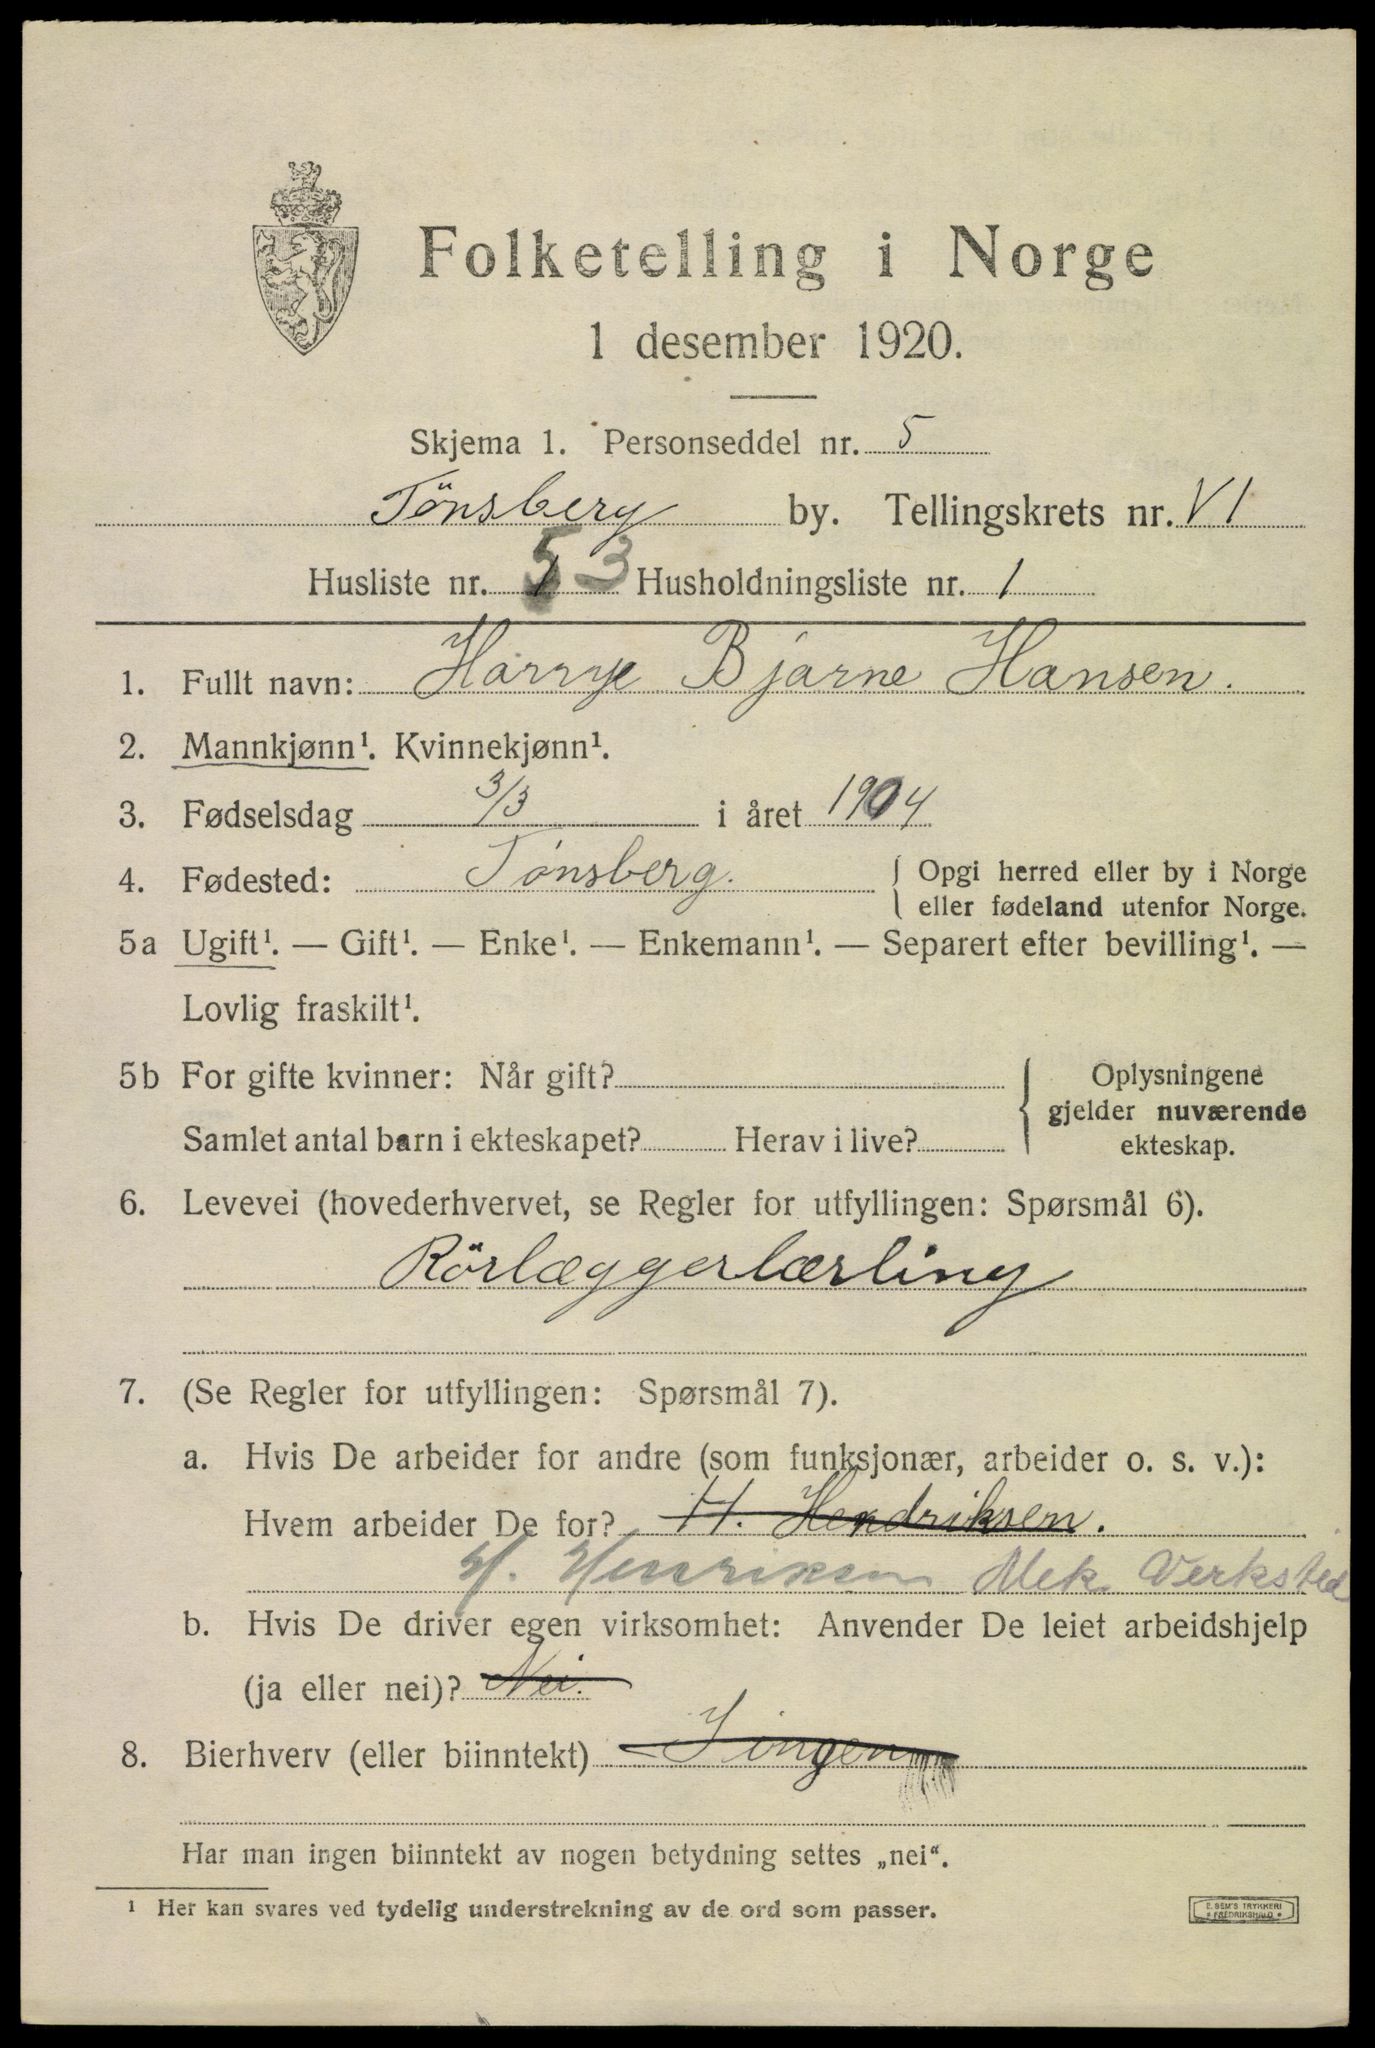 Folketelling i Norge
1 desember 1920.
Skjema 1. Personseddel nr. 5
Tönsberg by. Tellingskrets nr. VI
Husliste nr. 1 53 Husholdningsliste nr. 1
1. Fullt navn: Harrye Bjarne Hansen.
2. Mannkjønn¹. Kvinnekjønn¹.
3. Fødselsdag 3/3 i året 1904
4. Fødested: Tønsberg. { Opgi herred eller by i Norge
eller fødeland utenfor Norge.
5a Ugift¹. — Gift¹. — Enke¹. — Enkemann¹. — Separert efter bevilling¹. —
Lovlig fraskilt¹.
5b For gifte kvinner: Når gift? { Oplysningene
gjelder nuværende
Samlet antal barn i ekteskapet? Herav i live? ekteskap.
6. Levevei (hovederhvervet, se Regler for utfyllingen: Spørsmål 6).
Rörlæggerlærling
7. (Se Regler for utfyllingen: Spørsmål 7).
a. Hvis De arbeider for andre (som funksjonær, arbeider o. s. v.):
Hvem arbeider De for? H. Hendriksen.
H. Henriksen Mek Verksted
b. Hvis De driver egen virksomhet: Anvender De leiet arbeidshjelp
(ja eller nei)? Nei.
8. Bierhverv (eller biinntekt) Iingen
Har man ingen biinntekt av nogen betydning settes „nei“.
¹ Her kan svares ved tydelig understrekning av de ord som passer.
E. SEM'S TRYKKERI
* FREDRIKSHALD *